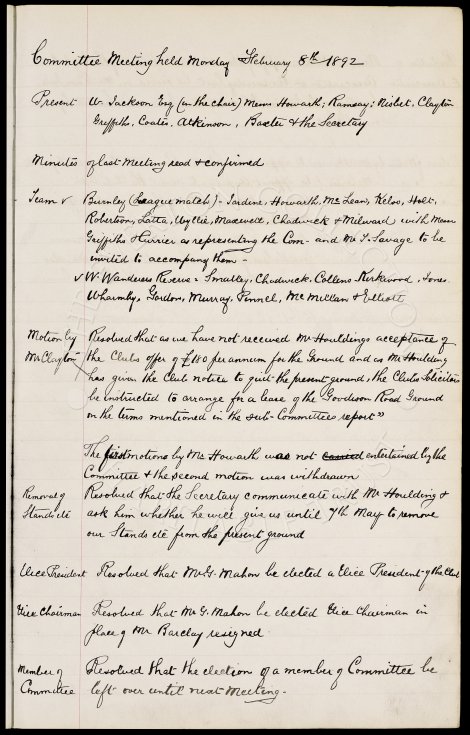 Committee Meeting held Monday February 8th 1892
Present W. Jackson Esq (in the chair) Messrs Howarth, Ramsay, Nisbet, Clayton
Griffiths, Coates, Atkinson, Baxter & the Secretary
Minutes of last Meeting read & confirmed
Team v Burnley (League match) - Jardine, Howarth, McLean, Kelso, Holt,
Robertson, Latta, Wyllie, Maxwell, Chadwick & Milward with Messrs
Griffiths & Currier as representing the Com- and Mr T. Savage to be
invited to accompany them -
v W. Wanderers Reserve - Smalley, Chadwick, Collens, Kirkwood, Jones
Wharmby, Gordon, Murray, Pinnell, McMillan & Elliott
Motion by Mr Clayton Resolved that as we have not received Mr Houldings acceptance of
the Clubs offer of £180 per annum for the Ground and as Mr Houlding
has given the Club notice to quit the present ground, the Clubs Solicitors
be instructed to arrange for a lease of the Goodison Road Ground
on the terms mentioned in the sub-Committees report"
The first motions by Mr Howarth was not carried entertained by the
Committee & the second motion was withdrawn
Removal of Stands etc Resolved that the Secretary communicate with Mr Houlding &
ask him whether he will give us until 7th May to remove
our Stands etc from the present ground
Vice President Resolved that Mr G. Mahon be elected a Vice President of the Club
Vice Chairman Resolved that Mr G. Mahon be elected Vice Chairman in
place of Mr Barclay resigned
Member of Committee Resolved that the election of a member of Committee be
left over until next Meeting.